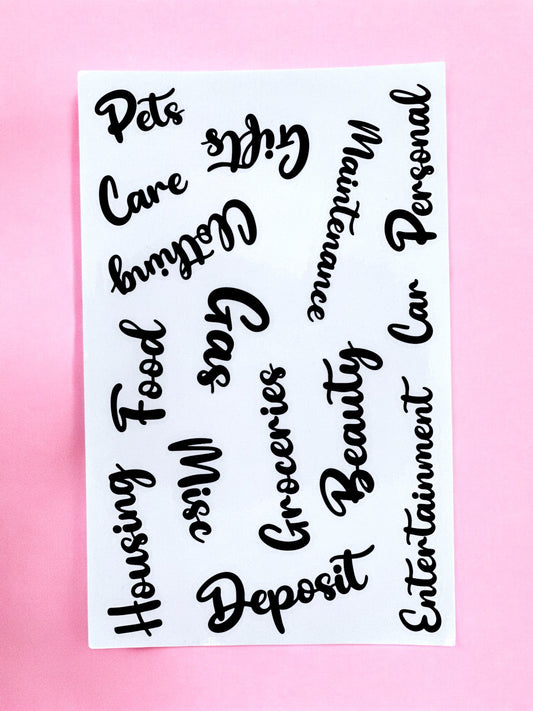 Pets
Gifts
Maintenance
Personal
Care
Clothing
Gas
Car
Food
Groceries
Beauty
Misc
Entertainment
Housing
Deposit